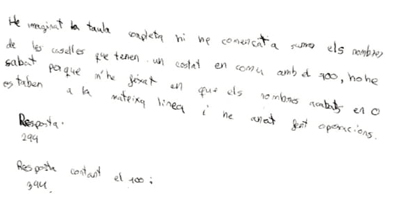 He imaginat la taula completa hi he començat a sumar els nombres
de les caselles que tenen un costat en comú amb el 100, ho he
sabut perque m'he fixat en que els nombres acabats en 0
estaben a la mateixa linea i he anat fent operacions.
Resposta:
294
Resposta contant el 100:
394.